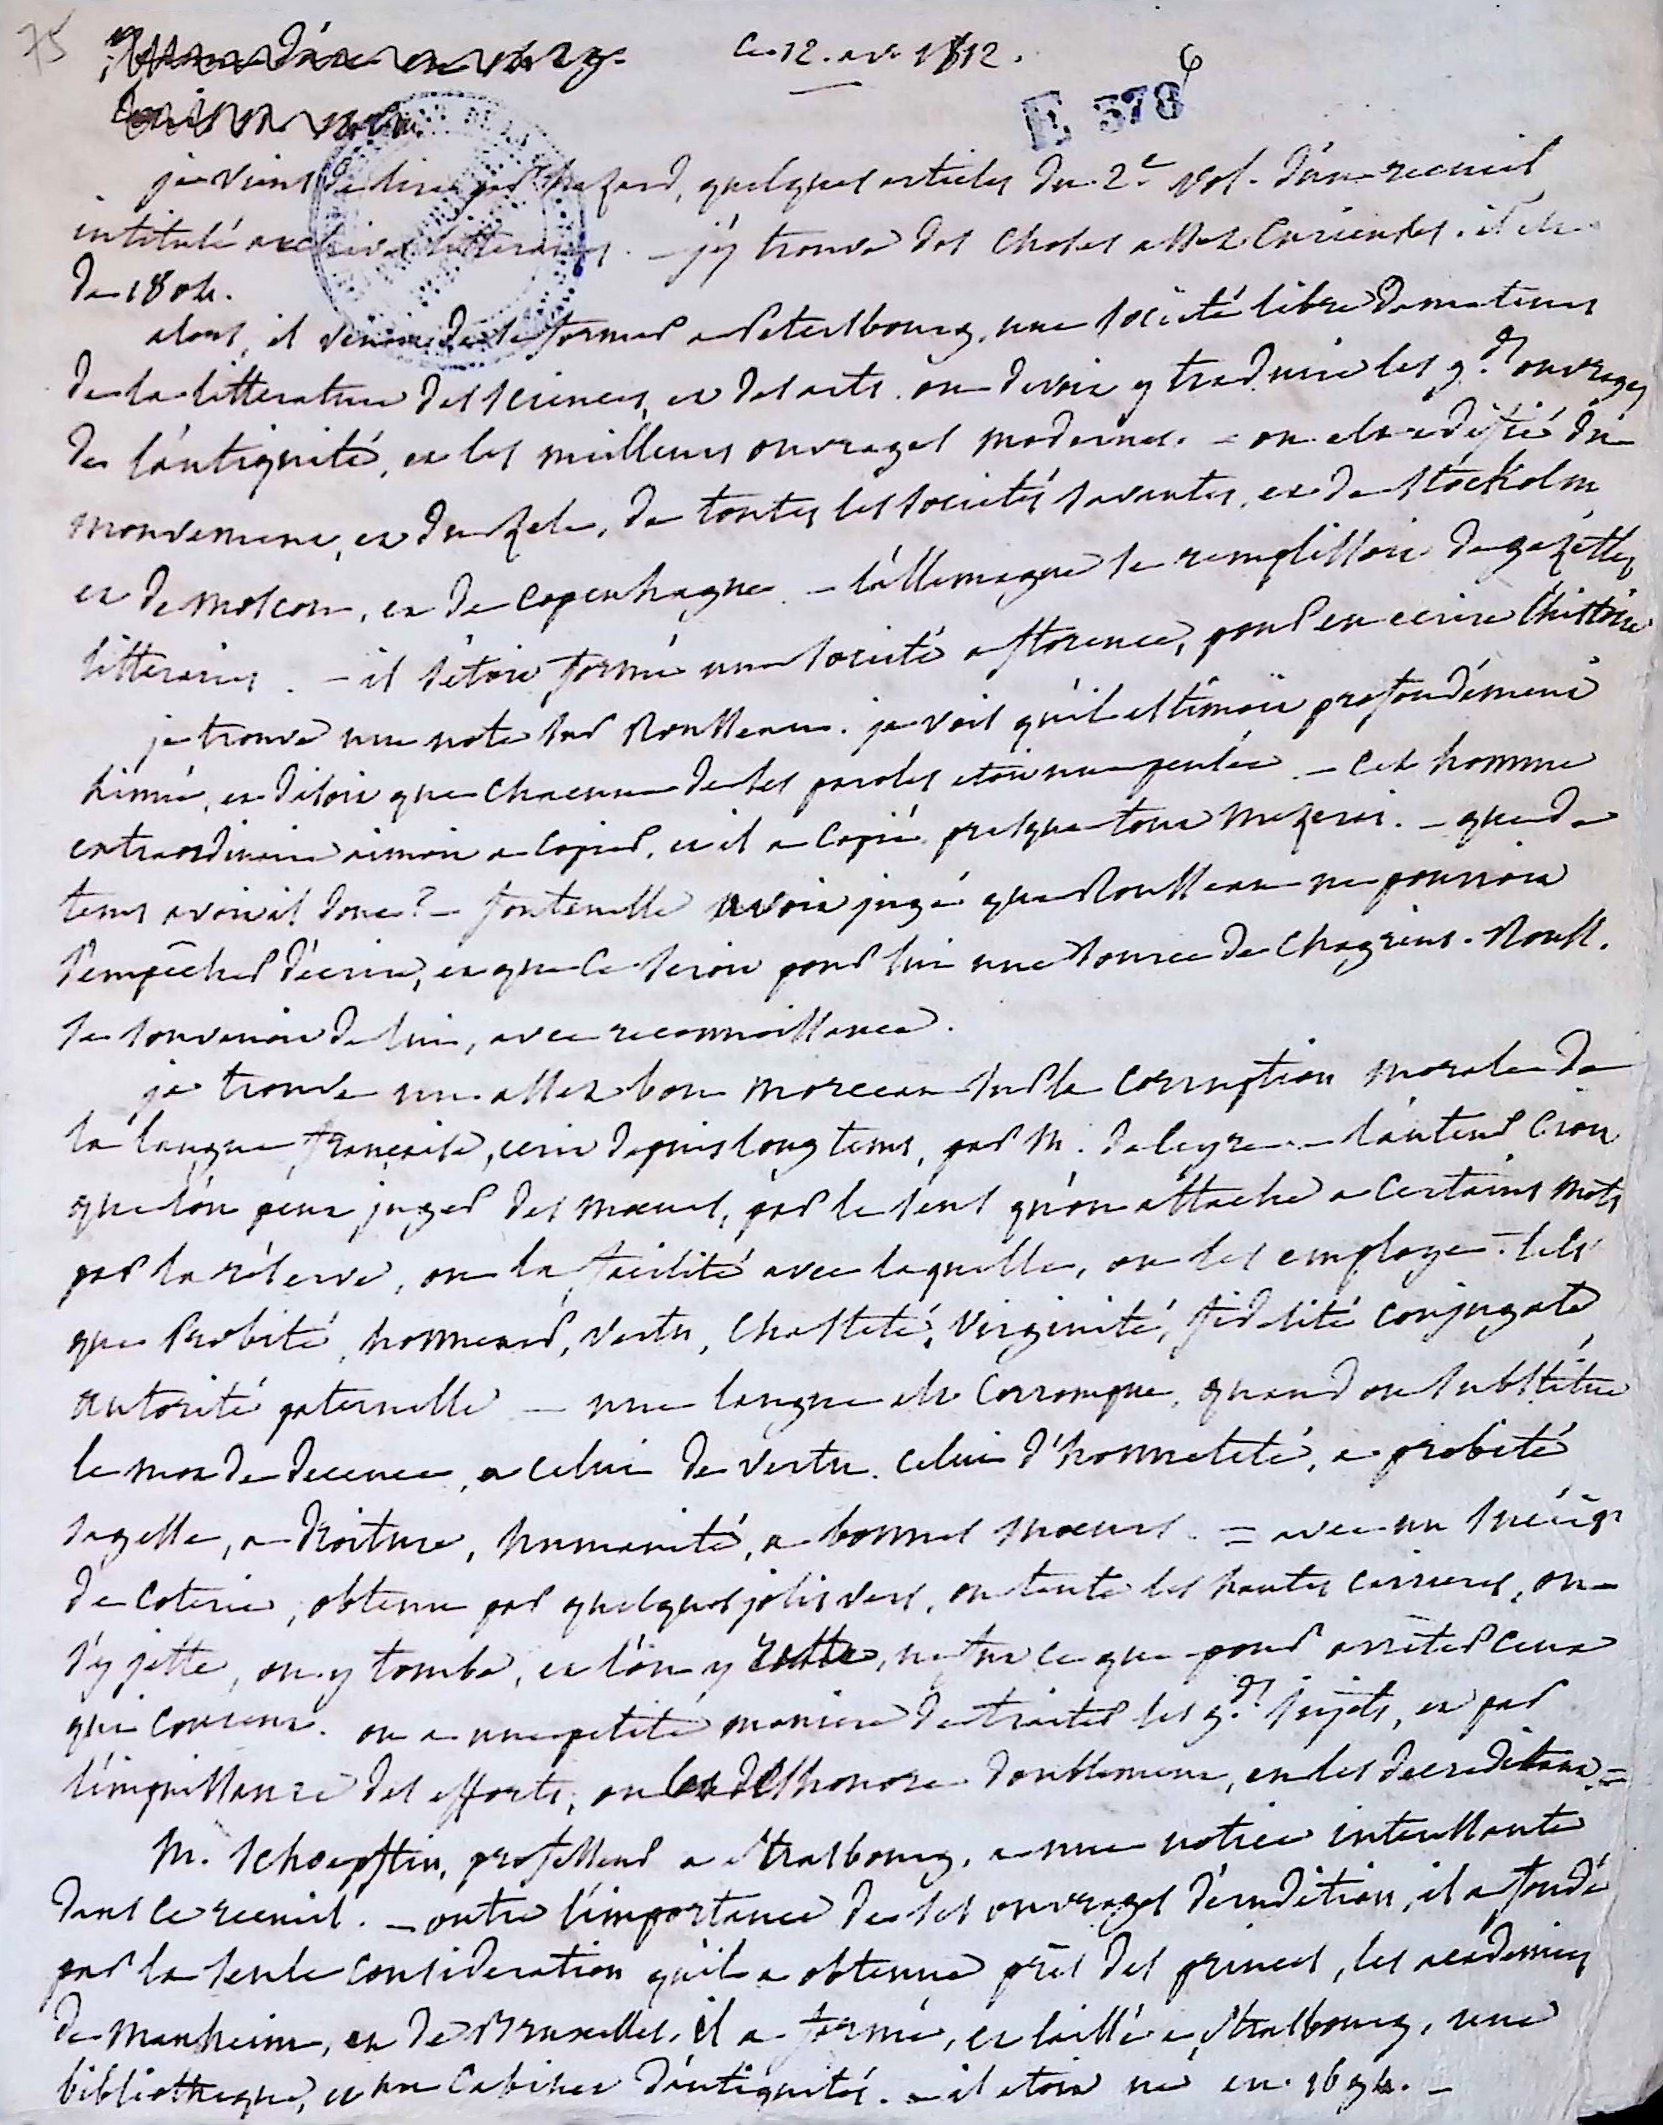 75
ce 12. avr 1812.
6
E 378
je viens de lire par hazard, quelques articles du 2e vol. d'un recueil
intitulé archives litteraires. - j'y trouve des choses assez curieuses. il est
de 1804.
alors, il venoit de se former a Petersbourg, une société libre d'amateurs
de la litterature des sciences, et des arts. on devoit y traduire les gds ouvrages
de l'antiquité, et les meilleurs ouvrages modernes. - on est edifié du
mouvement, et du zele, de toutes les sociétés savantes, et de stockolm
et de moscou, et de copenhague. - l'allemagne se remplissoit de gazettes
litteraires. - il s'étoit formé une société a florence, pour en ecrire l'histoire
je trouve une note sur Rousseau. je vois qu'il estimoit profondément
et disoit que chacune de ses paroles etoit une pensée. - cet homme
extraordinaire aimoit a copier, et il a copié presque tout mezerai. - que de
tems avoit il donc ? - fontenelle avoit jugé que Rousseau ne pourroit
s'empêcher d'écrire, et que ce seroit pour lui une source de chagrins. Rouss.
se souvenoit de lui, avec reconnoissance.
je trouve un assez bon morceau sur la corruption morale de
la langue française, ecrit depuis long tems, par M. deleyre. - l'auteur croit
que l'on peut juger des mœurs, par le sens qu'on attache a certains mots
par la réserve, ou la facilité avec laquelle, on les employe. - tels
que Probité, honneur, vertu, chasteté, virginité, fidelité conjugale
autorité paternelle - une langue est corrompue, quand on substitue
le mot de decence, a celui de vertu. celui d'honnêteté, a probité
sagesse, a droiture, humanité, a bonnes mœurs. = avec un succès
de coterie, obtenu par quelques jolis vers, on tente les hautes carrieres, on
s'y jette, on y tombe, et l'on y reste, ne fut ce que pour arrêter ceux
qui courent. on a une petite maniere de traiter les gds sujets, et par
l'impuissance des efforts, on les deshonore doublement, en les decreditant. =
M. Schoepflin, professeur a strasbourg, a une notice interessante
dans ce recueil. - outre l'importance de ses ouvrages d'érudition, il a fondé
par la seule consideration qu'il a obtenue près des princes, les academies
de Manheim, et de Bruxelles. il a formé, et laissé a strasbourg, une
bibliotheque, et un cabinet d'antiquités. - il etoit né en 1694. -